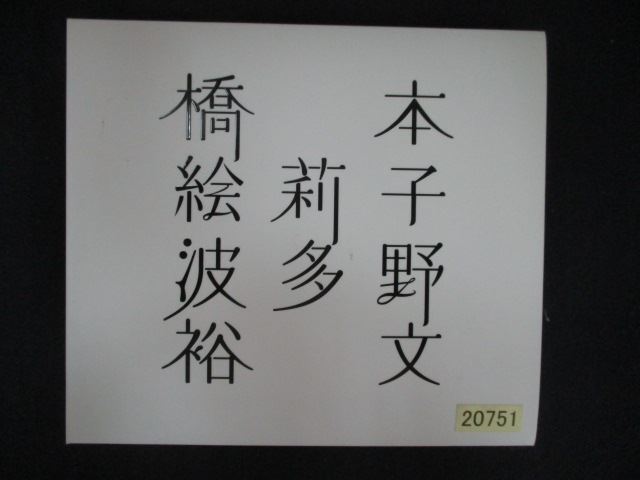 本子野文
莉多
橋絵波裕
20751